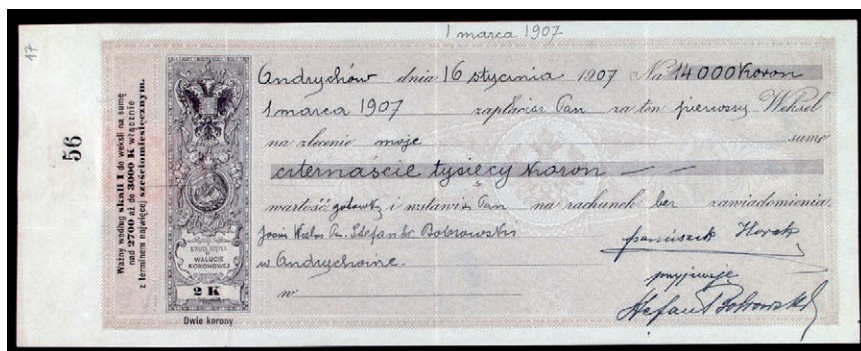 1 marca 1907
17
56
Ważny według skali I do weksli na sumę
nad 2700 aż do 3000 K włącznie
z terminem najwięcej sześciomiesięcznym.
KWOTA STĘPLA
W
WALUCIE
KORONOWEJ
2 K
Dwie korony
Andrychów dnia 16 stycznia 1907 Na 14000 Koron
1 marca 1907 zapłacisz Pan za ten pierwszy Weksel
na zlecenie moje sumę
czternaście tysięcy Koron
wartość gotówką i wstawisz Pan na rachunek bez zawiadomienia.
Stefan Bobrowski
w Andrychowie.
w
przyjmuję
Stefan Bobrowski